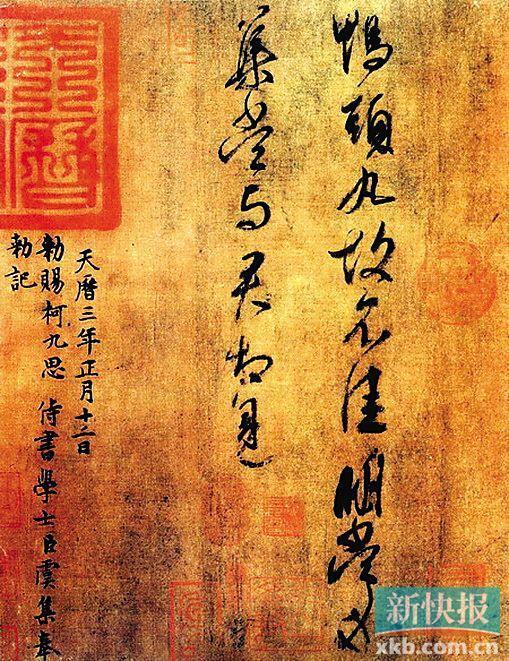 鴨頭丸故不佳明當必
集當与君相見
天曆三年正月十二日
勑賜柯九思侍書學士臣虞集奉
勑記
新快报
xkb.com.cn